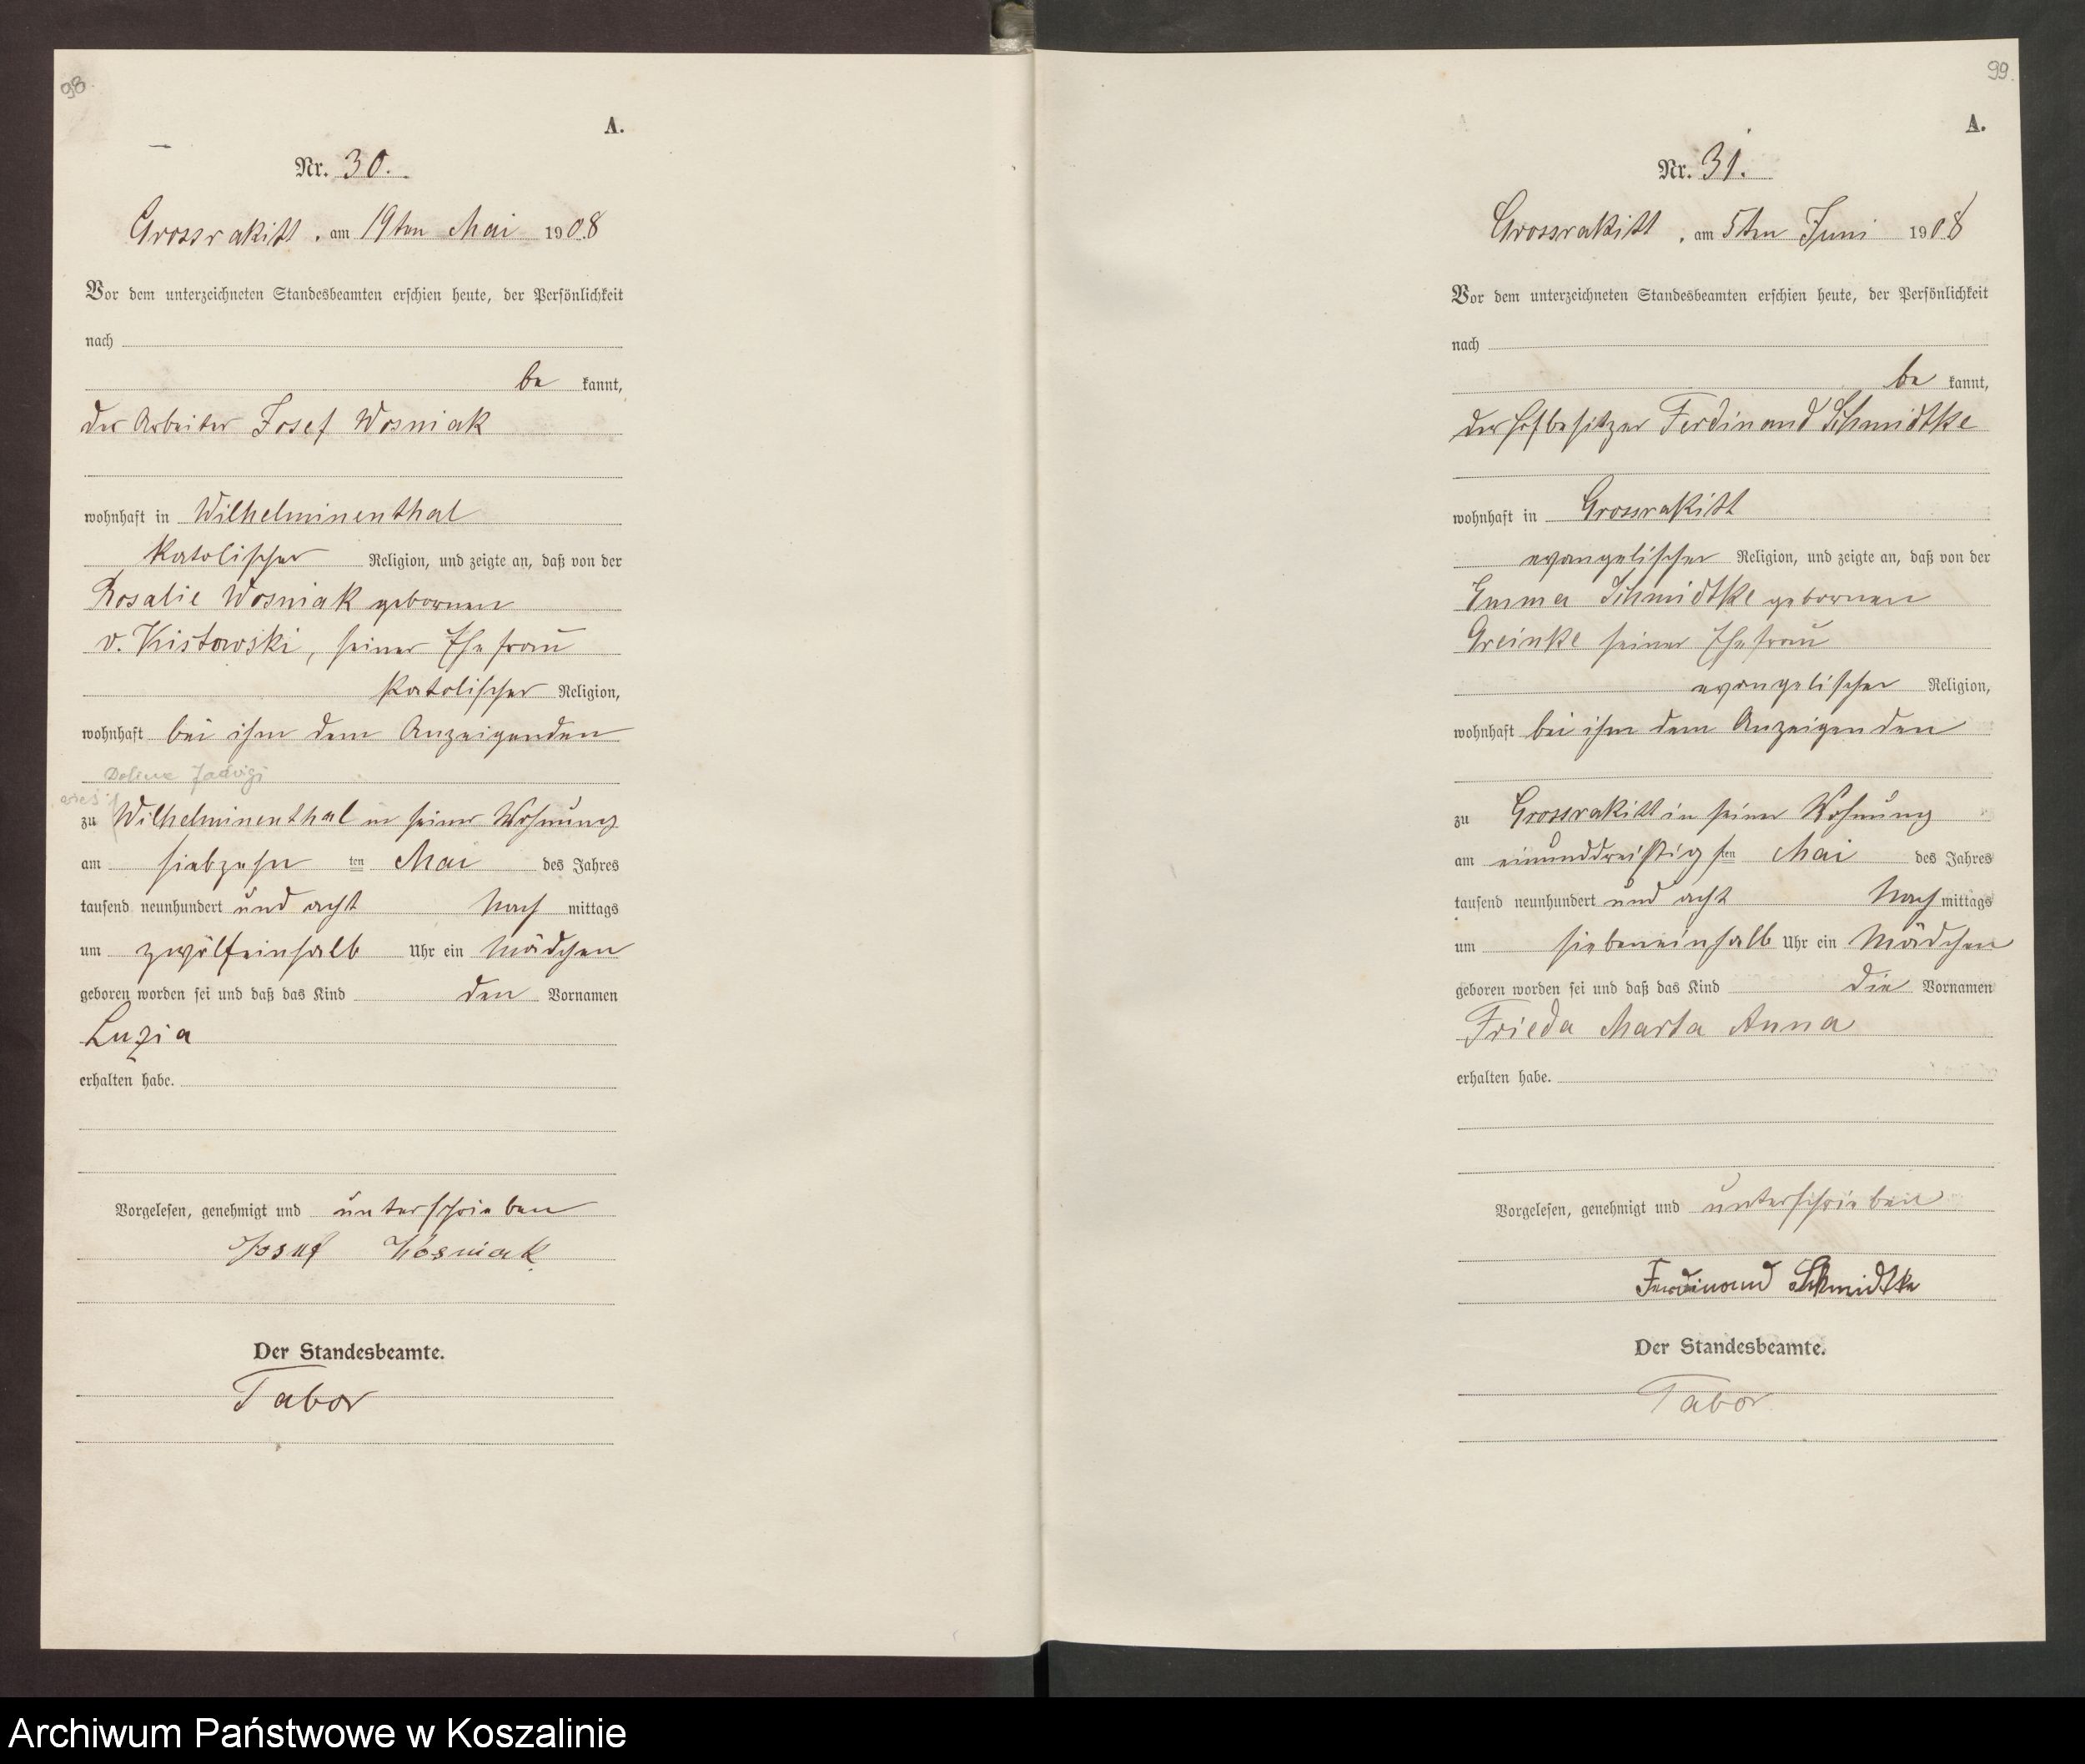 98.
A.
Nr. 30.
Grossrakitt, am 19ten Mai 1908
Vor dem unterzeichneten Standesbeamten erschien heute, der Persönlichkeit
nach
be kannt,
der Arbeiter Josef Wosniak
wohnhaft in Wilhelminenthal
katolischer Religion, und zeigte an, daß von der
Rosalie Wosniak gebornen
v. Kistowski, seiner Ehefrau
katolischer Religion,
wohnhaft bei ihm dem Anzeigenden
Dolina Jadwigi
wieś
zu Wilhelminenthal in seiner Wohnung
am siebzehn ten Mai des Jahres
tausend neunhundert und acht Nach mittags
um zwölfeinhalb Uhr ein Mädchen
geboren worden sei und daß das Kind den Vornamen
Luzia
erhalten habe.
Vorgelesen, genehmigt und unterschrieben
Josef Wosniak
Der Standesbeamte.
Tabor
99.
A.
Nr. 31.
Grossrakitt, am 5ten Juni 1908
Vor dem unterzeichneten Standesbeamten erschien heute, der Persönlichkeit
nach
be kannt,
der Hofbesitzer Ferdinand Schmidtke
wohnhaft in Grossrakitt
evangelischer Religion, und zeigte an, daß von der
Emma Schmidtke gebornen
Greinke seiner Ehefrau
evangelischer Religion,
wohnhaft bei ihm dem Anzeigenden
zu Grossrakitt in seiner Wohnung
am einunddreißigsten Mai des Jahres
tausend neunhundert und acht Nach mittags
um siebeneinhalb Uhr ein Mädchen
geboren worden sei und daß das Kind die Vornamen
Frieda Marta Anna
erhalten habe.
Vorgelesen, genehmigt und unterschrieben
Ferdinand Schmidtke
Der Standesbeamte.
Tabor
Archiwum Państwowe w Koszalinie